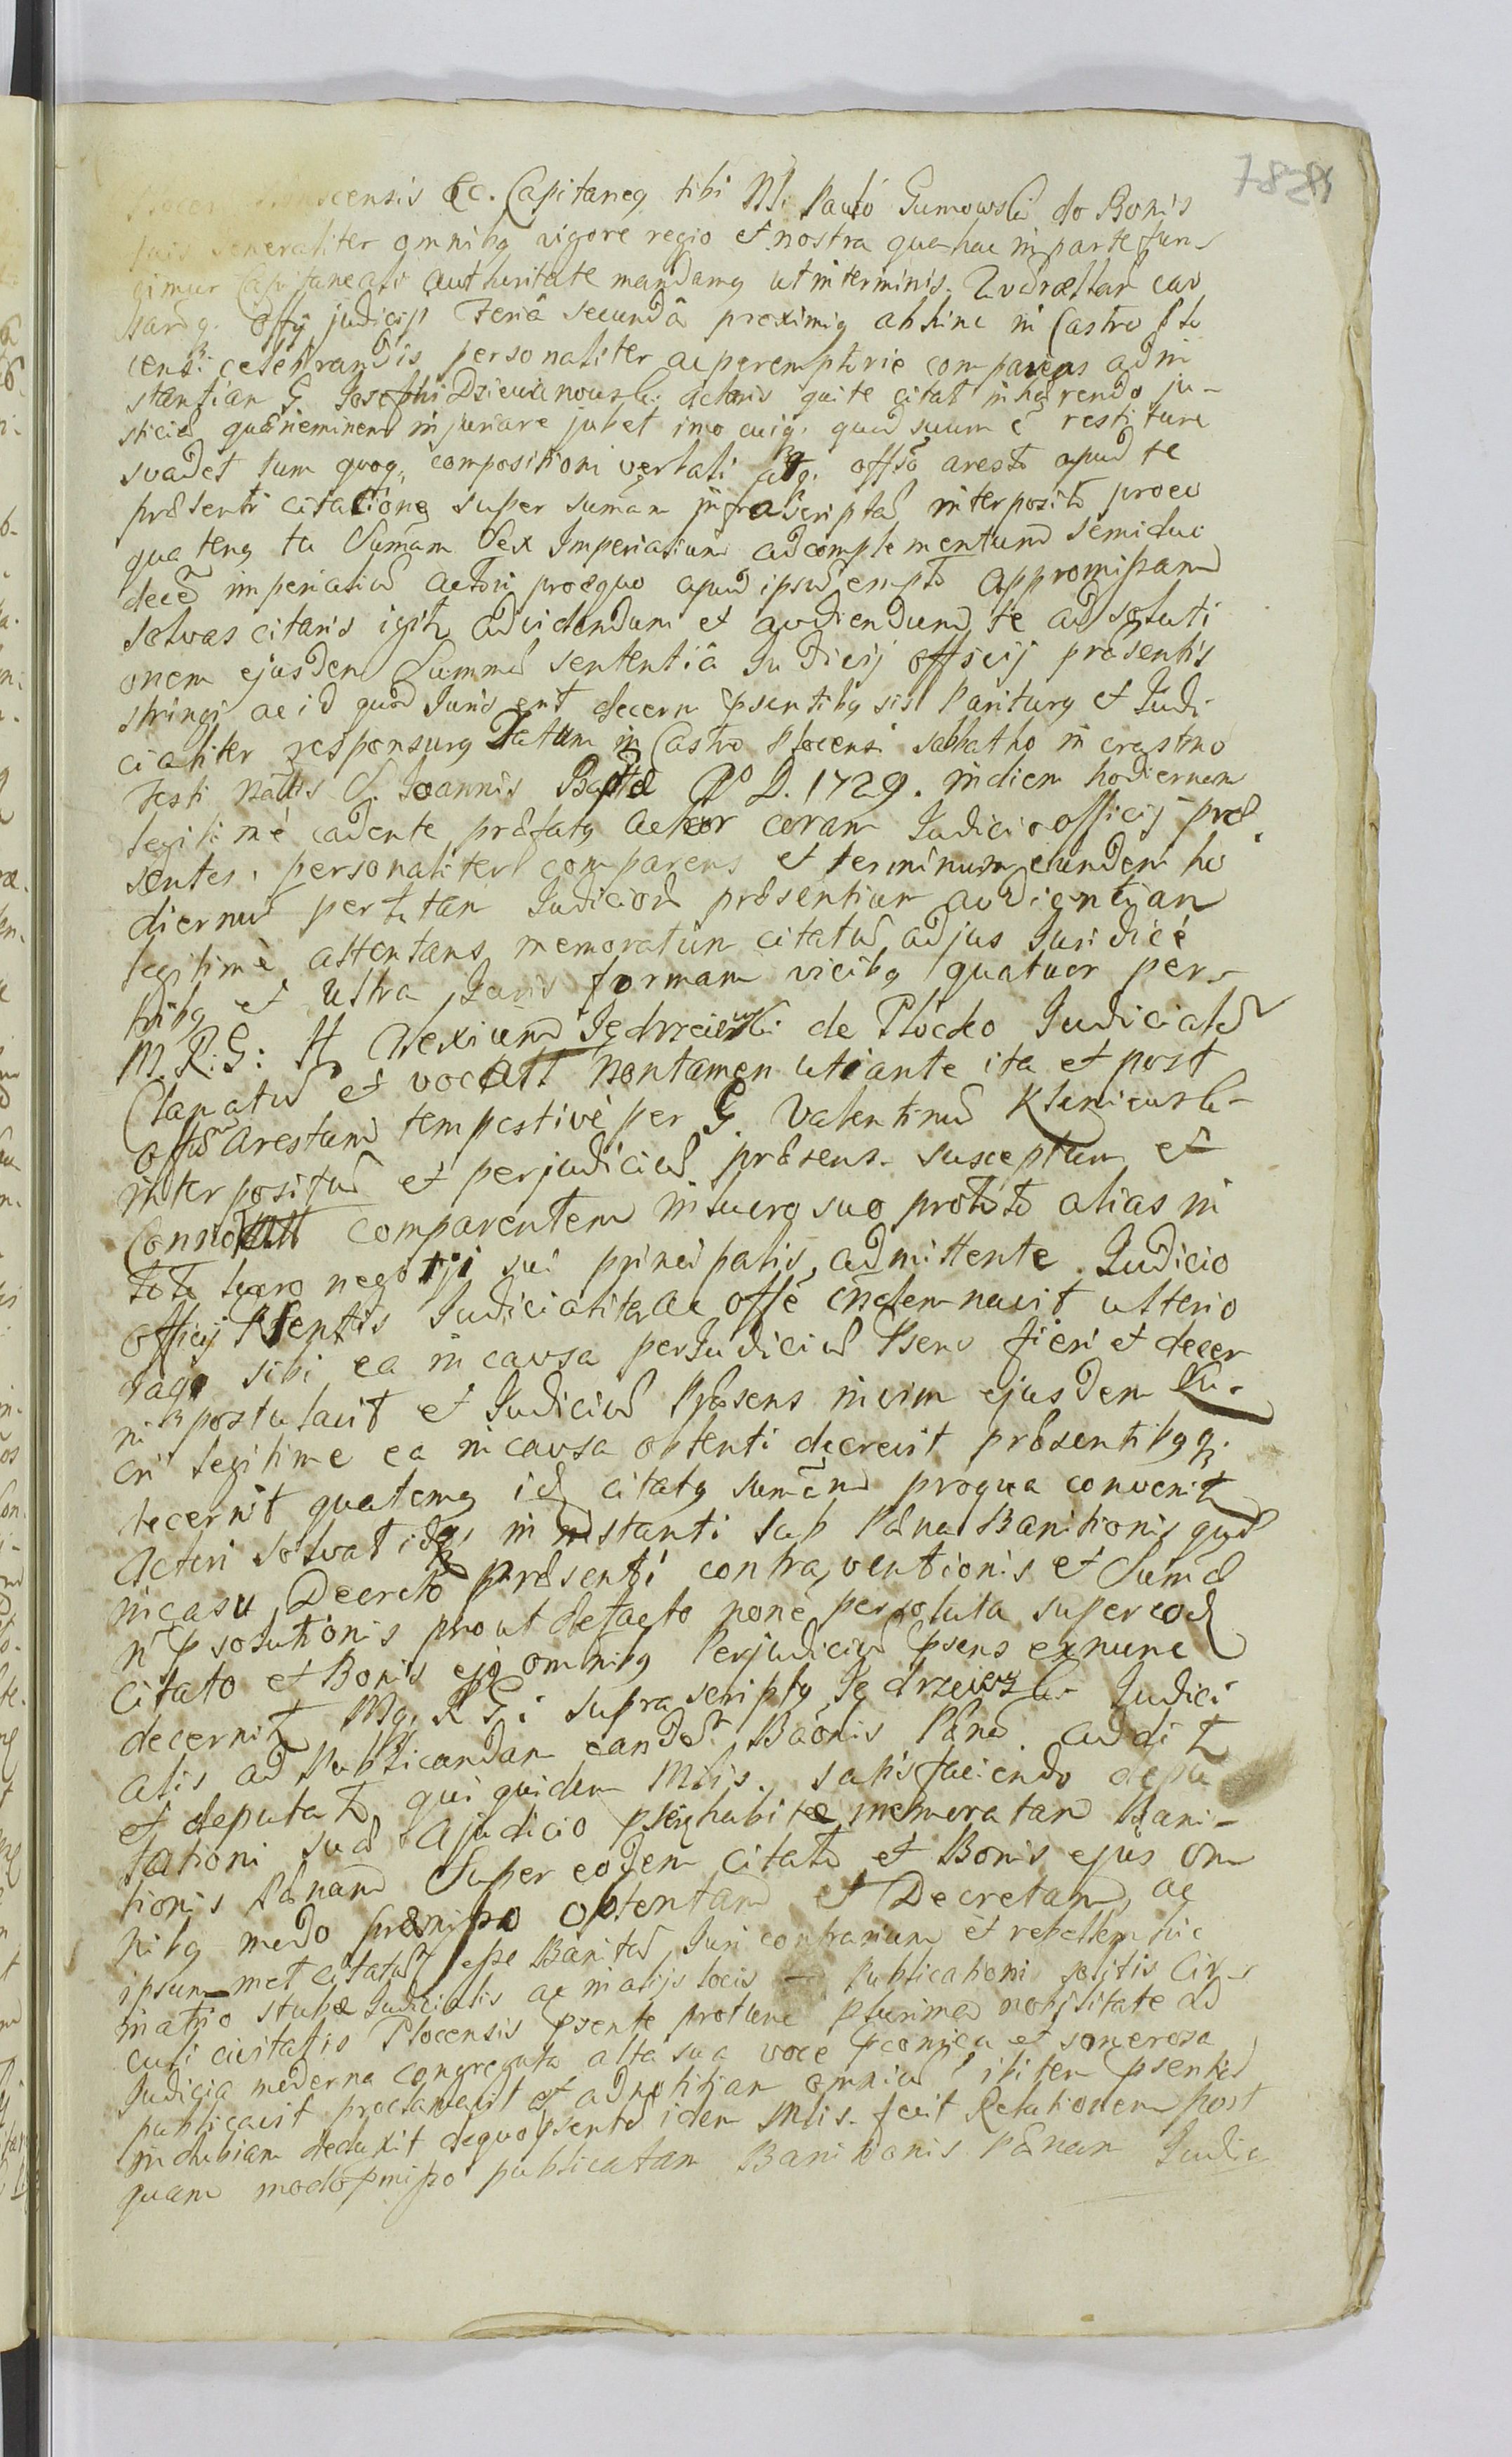 7-8-84
censis &c. Capitaneg tibi Nli Paulo Gumowski de Bonis
suis generaliter omnibg vigore regio et nostra qua hac in parte fun-
gimur Capitaneali authuritate mandamg ut in terminis
offij judicij Feriâ secundâ proximig abhinc in Castro Plo
cens: celebrandis personaliter ac peremptorie compareas ad in
stantian G Josephi Dziewanowski actoris qui te citat inhærendo ju-
sticiæ quæ neminem injuriare jubet imo cuiq. quod suum ē restituere
svadet tum quoq, compositioni verbali atq. offso aresto apud te
præsenti citationeg super sumam infrascriptam interposito proeo
quateng tu Sumam Sex Imperialium ad complementum semiduo
decē imperialiū actori proequo apud ipsū empto appromissam
solvas citaris igitr ad videndum et audiendum te ad soluti
onem ejusdem Summæ sententiâ Judicij officij præsentis
stringi ac id quod Juris erit decern psentibg sis Pariturg et Judi
cialiter responsurg Datum in Castro Plocensi sabbatho in crastino
Festi Natlis S. Joannis Baptæ Ao D. 1729. in diem hodiernam
legitimè cadente præfatg actor coram Judicio officij præ
sentes. personaliter comparens et terminum eundem ho
diernū per totam Judicior præsentium audientiam
legitimè attentans memoratum citatū ad jus Juridicè
tribg et ultra Juris formam vicibg quatuor per
M. R. G: H Alexium Jędrzeiewski de Plocko Judicialē
Clamatū et vocatt non tamen uti ante ita et post
offsū arestum tempestivè per G. Valentinū Kliniewski
interpositū et perjudiciū præsens susceptum et
Connotatt comparentem in lucro suo prototo alias in
toto lucro negotiji sui principalis, admittente Judicio
officij Psentis Judicialiter ac offē cndemnavit ulterio
raqe sibi ea in causa per Judiciū Psens fieri et decer
ni postulavit et Judiciū Præsens in vim ejusdem Lu-
cri legitime ea in causa obtenti decrevit præsentibgq.
decernit quateng id citatg sumam proqua convenitr
Actori solvat in instanti sub Pæna Banitionis quæ
in casu Decreto præsenti contraventionis et Sumæ
n psolutionis prout defacto non ē persoluta super eod
citato et Bonis ejg omnibg Perjudiciū psens exnunc
decernitr Mg, R G: suprascriptg Jędrzeiewski Judici
alis ad Publicandam eandē Baōnis Pænā additr
et deputatr qui quidem Mlis. satisfaciendo depu
tationi suæ a judicio psen habitæ memoratam Bani-
tionis Pænam Super eodem citato et Bonis ejus om
nibg modo præmisso obtentam et Decretam, ac
ipsum met citatum esse Banitū Juri contrarium et rebellem hic
in atrio stubæ Judicialis ac in alijs locis Publicationi solitis Cir-
culi civitatis Plocensis psente protunc plurima nobilitate ad
Judicia moderna congregata alta sua voce pconica et sonerosa
publicavit proclamavit et ad notitian omniū ibitem psentiū
indubiam deduxit dequo psentū idem Mlis. fecit Relationem post
quam modo pmisso publicatam Banitionis Pænam Judic